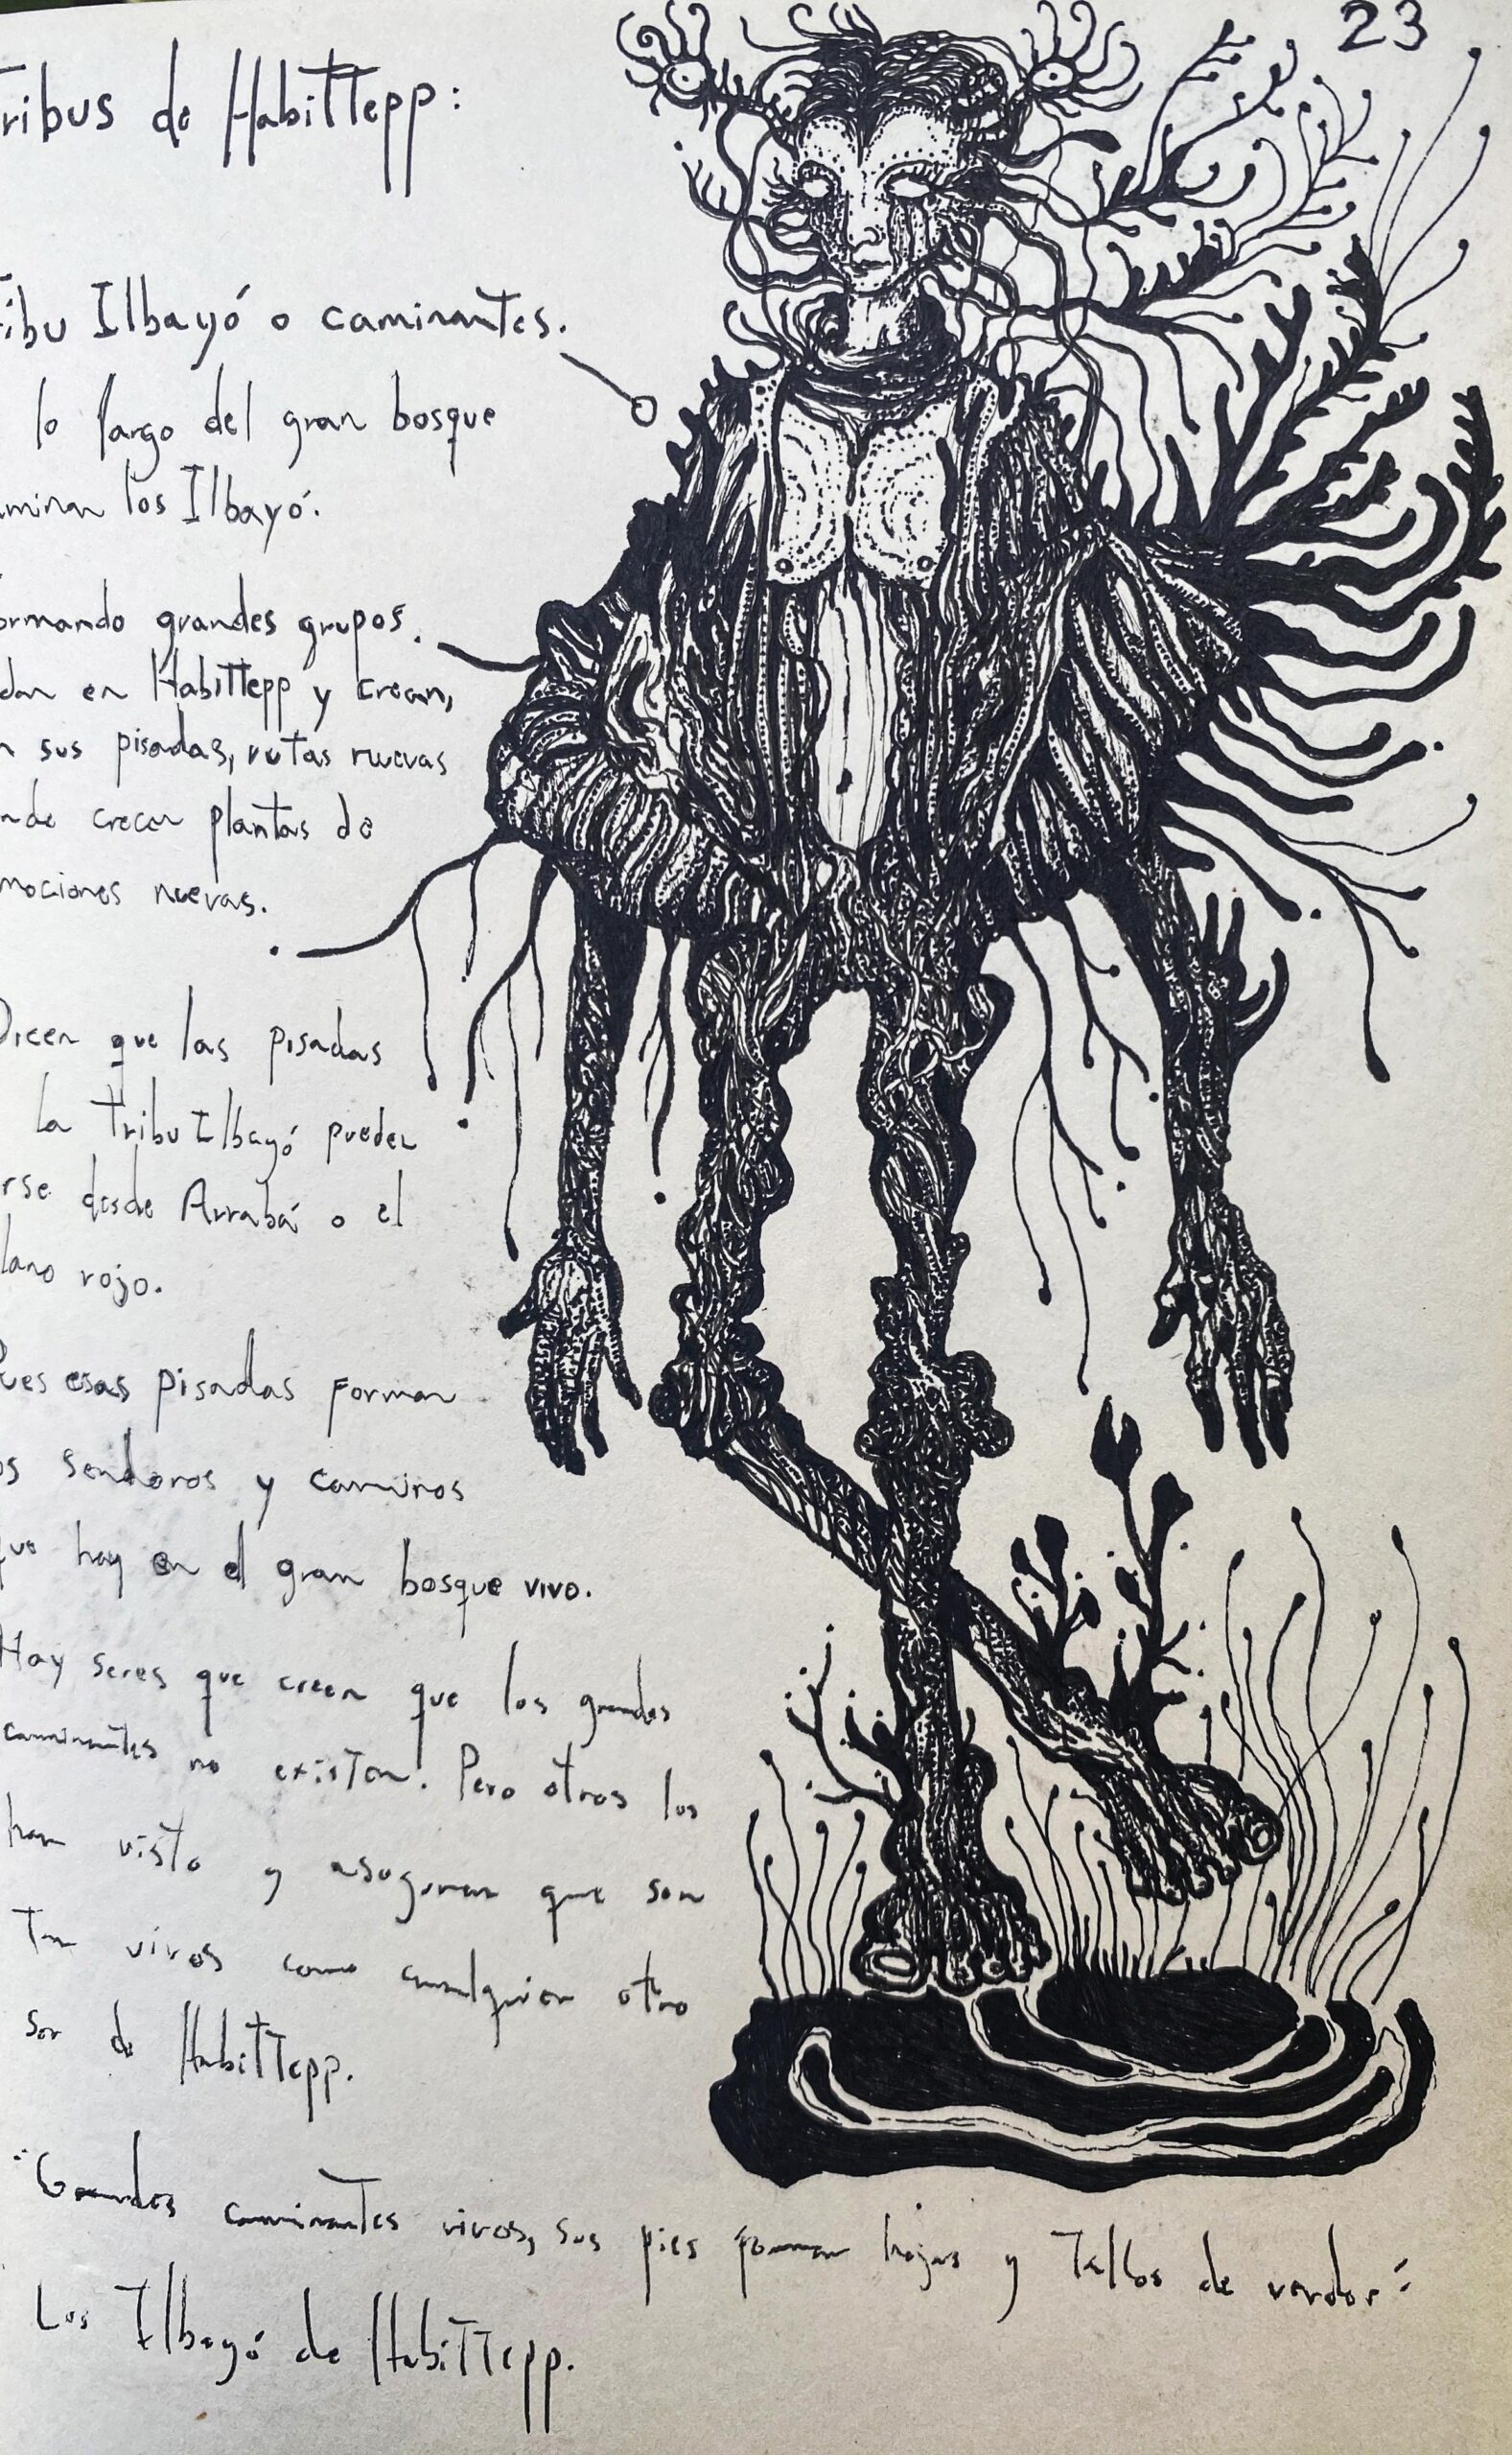 23
ribus de Habittepp:
ibu Ilbayó o caminantes.
lo largo del gran bosque
minan los Ilbayó.
ormando grandes grupos.
dan en Habittepp y crean,
n sus pisadas, rutas nuevas
nde crecen plantas de
mociones nuevas.
Dicen que las pisadas
la Tribu Ilbayó pueden
rse desde Arrabá o el
lano rojo.
ues esas pisadas forman
os senderos y caminos
que hay en el gran bosque vivo.
Hay seres que creen que los grandes
caminantes no existen. Pero otros los
han visto y aseguran que son
Tan vivos como cualquier otro
ser de Habittepp.
"Grandes caminantes vivos, sus pies forman hojas y Tallos de verdor"
Los Ilbayó de Habittepp.